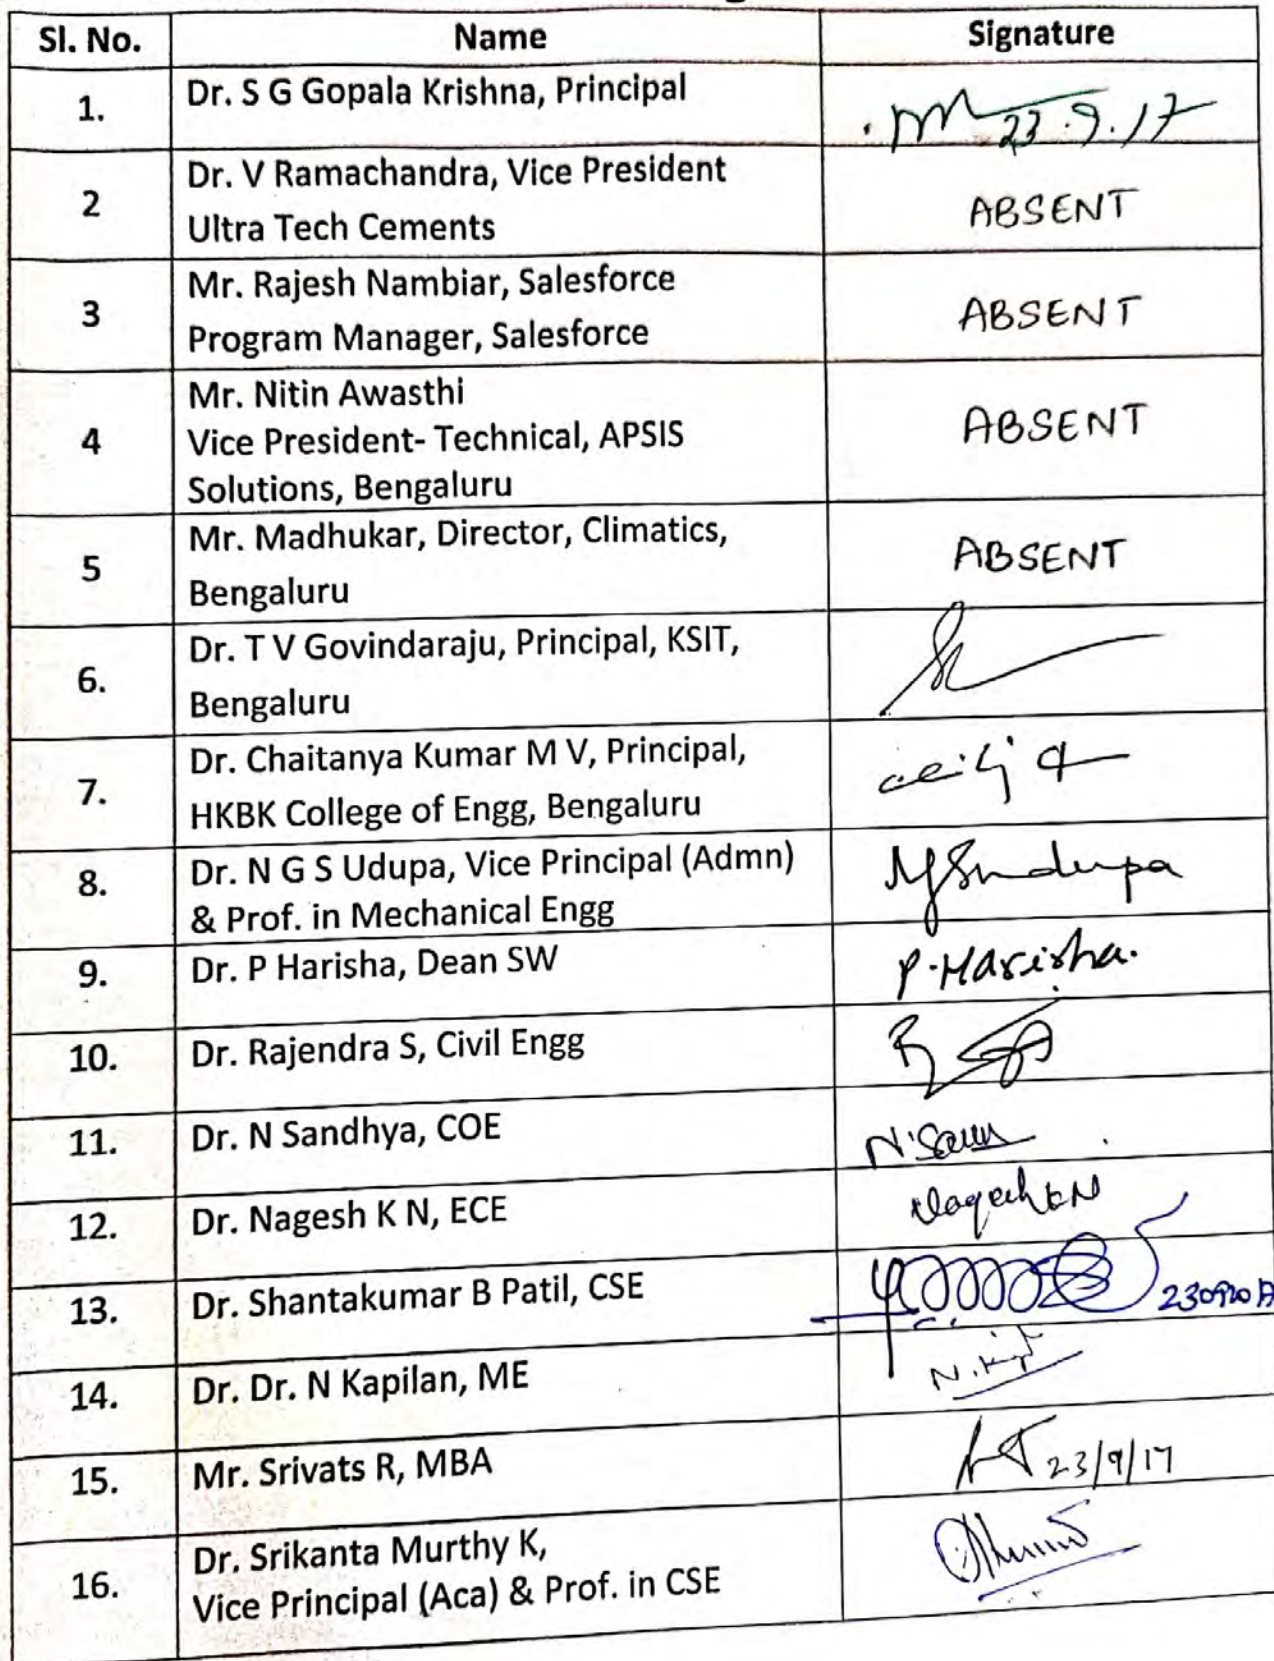 Sl. No. Name Signature
1. Dr. S G Gopala Krishna, Principal 23.9.17
2 Dr. V Ramachandra, Vice President
Ultra Tech Cements ABSENT
3 Mr. Rajesh Nambiar, Salesforce
Program Manager, Salesforce ABSENT
4 Mr. Nitin Awasthi
Vice President- Technical, APSIS ABSENT
Solutions, Bengaluru
5 Mr. Madhukar, Director, Climatics, ABSENT
Bengaluru
6. Dr. T V Govindaraju, Principal, KSIT,
Bengaluru
7. Dr. Chaitanya Kumar M V, Principal,
HKBK College of Engg, Bengaluru
8. Dr. N G S Udupa, Vice Principal (Admn)
& Prof. in Mechanical Engg
9. Dr. P Harisha, Dean SW P. Harisha.
10. Dr. Rajendra S, Civil Engg
11. Dr. N Sandhya, COE
12. Dr. Nagesh K N, ECE Nagesh KN
13. Dr. Shantakumar B Patil, CSE
14. Dr. Dr. N Kapilan, ME
15. Mr. Srivats R, MBA 23/9/17
16. Dr. Srikanta Murthy K,
Vice Principal (Aca) & Prof. in CSE